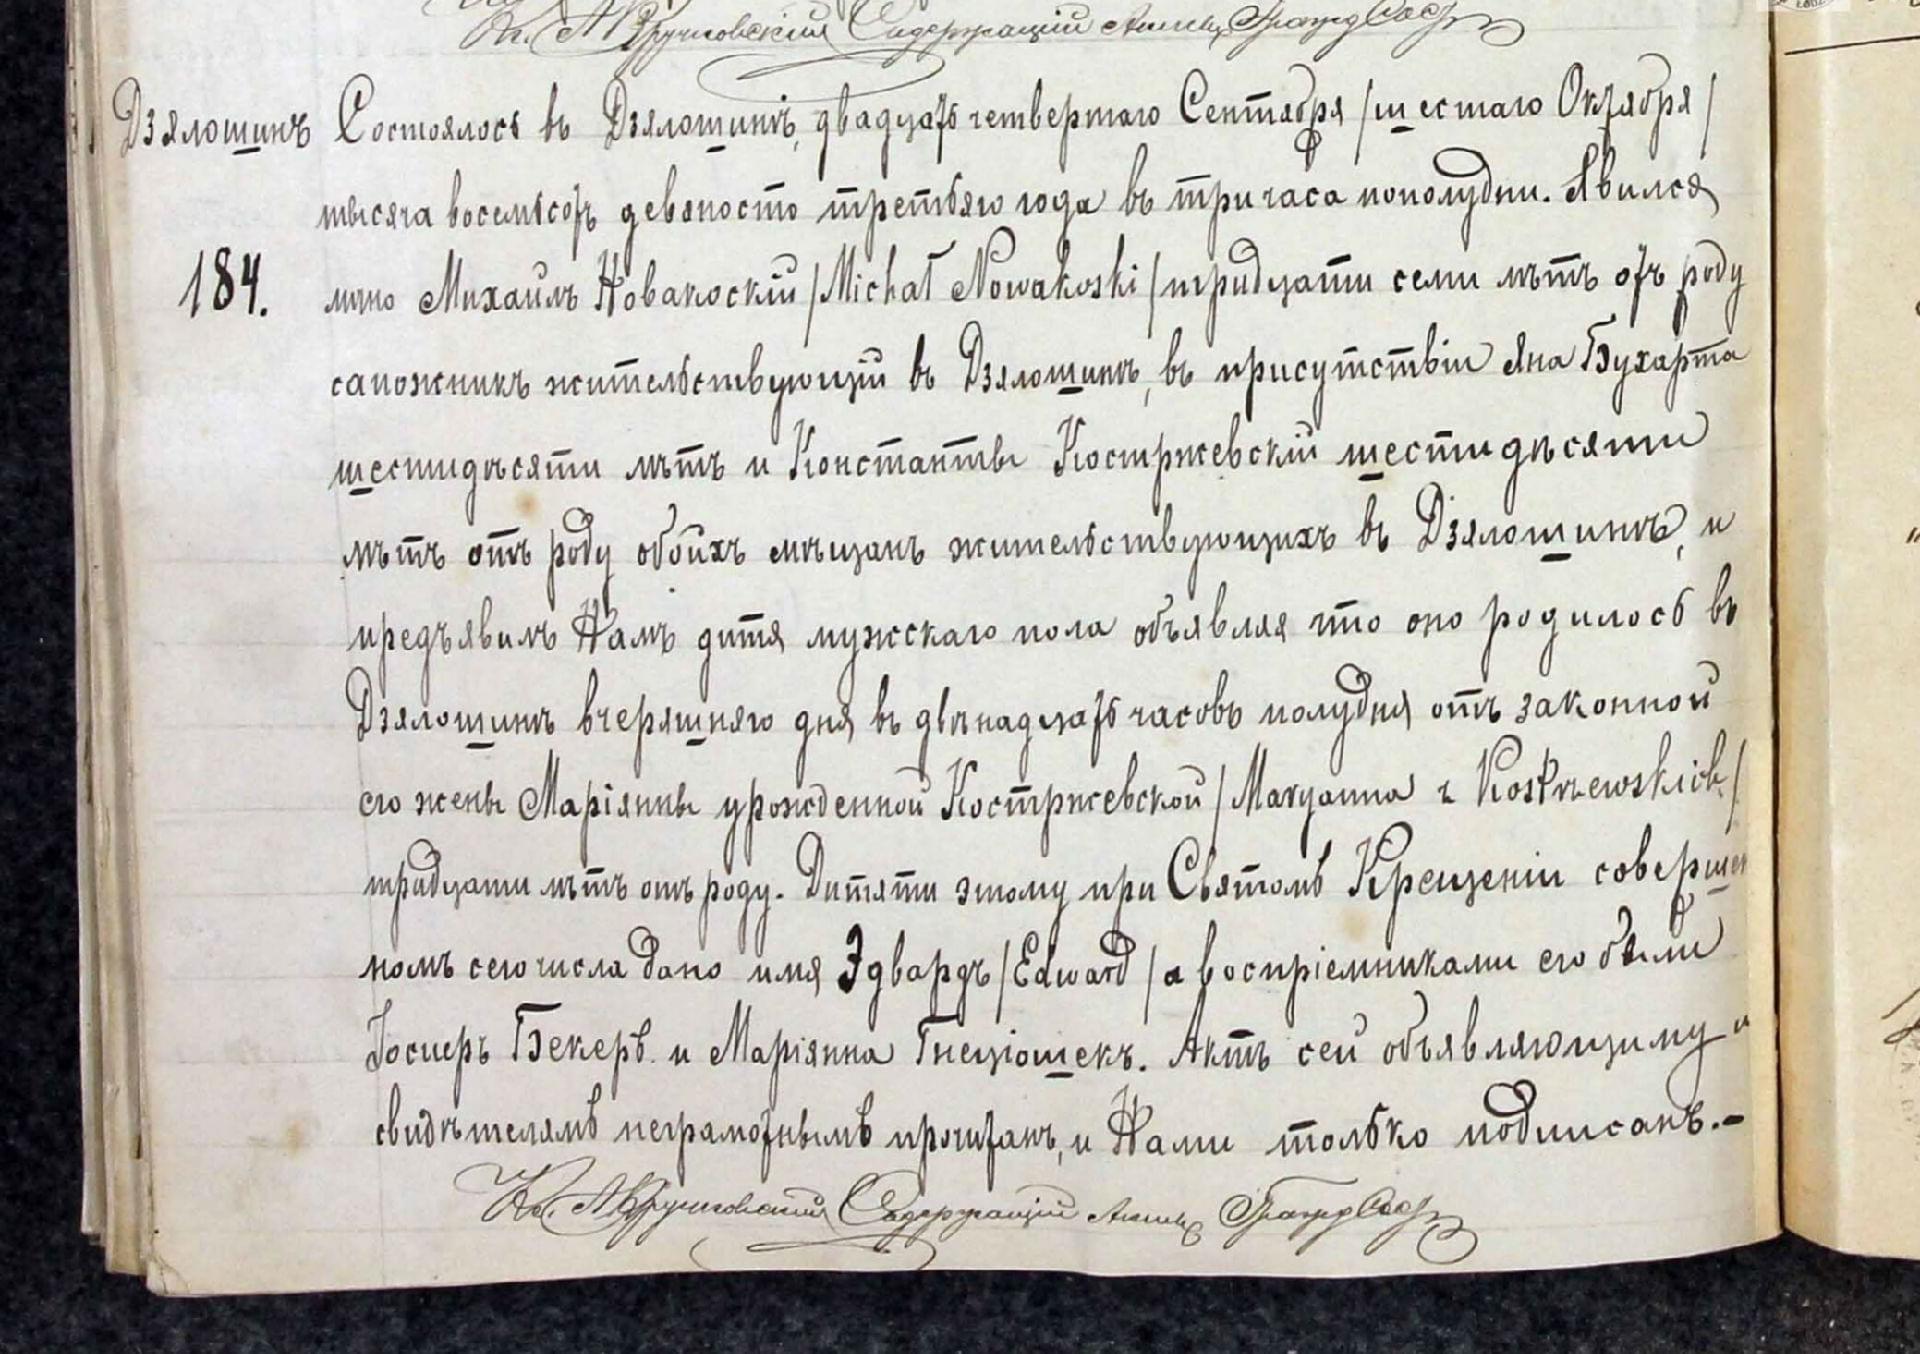 Кс. А Кручковскій Содержащій Акты Гражд Сост
Дзялошинъ Состоялось въ Дзялошинѣ, двадцать четвертаго Сентября /шестаго Октября/
тысяча восемьсотъ девяносто третьяго года въ три часа пополудни. Явился
184. лично Михаилъ Новакоскій /Michał Nowakoski/ тридцати семи лѣтъ отъ роду
сапожникъ жительствующій въ Дзялошинѣ, въ присутствіи Яна Бухарта
шестидѣсяти лѣтъ и Константы Костржевскій шестидѣсяти
лѣтъ отъ роду обоихъ мѣщанъ жительствующихъ въ Дзялошинѣ, и
предъявилъ Намъ дитя мужскаго пола объявляя что оно родилось въ
Дзялошинѣ вчеряшняго дня въ двѣнадцать часовъ полудня отъ законной
его жены Маріянны урожденной Костржевской /Maryanna z Kostrzewskich/
тридцати лѣтъ отъ роду. Дитяти этому при Святомъ Крещеніи совершен
номъ сего числа дано имя Эдвардъ /Edward/ а воспріемниками его были
Іосифъ Бекеръ и Маріянна Гнеціошекъ. Актъ сей объявляющиму и
свидѣтелямъ неграмотнымъ прочитанъ, и Нами только подписанъ.-
Кс. А Кручковскій Содержащій Акты Гражд Сост